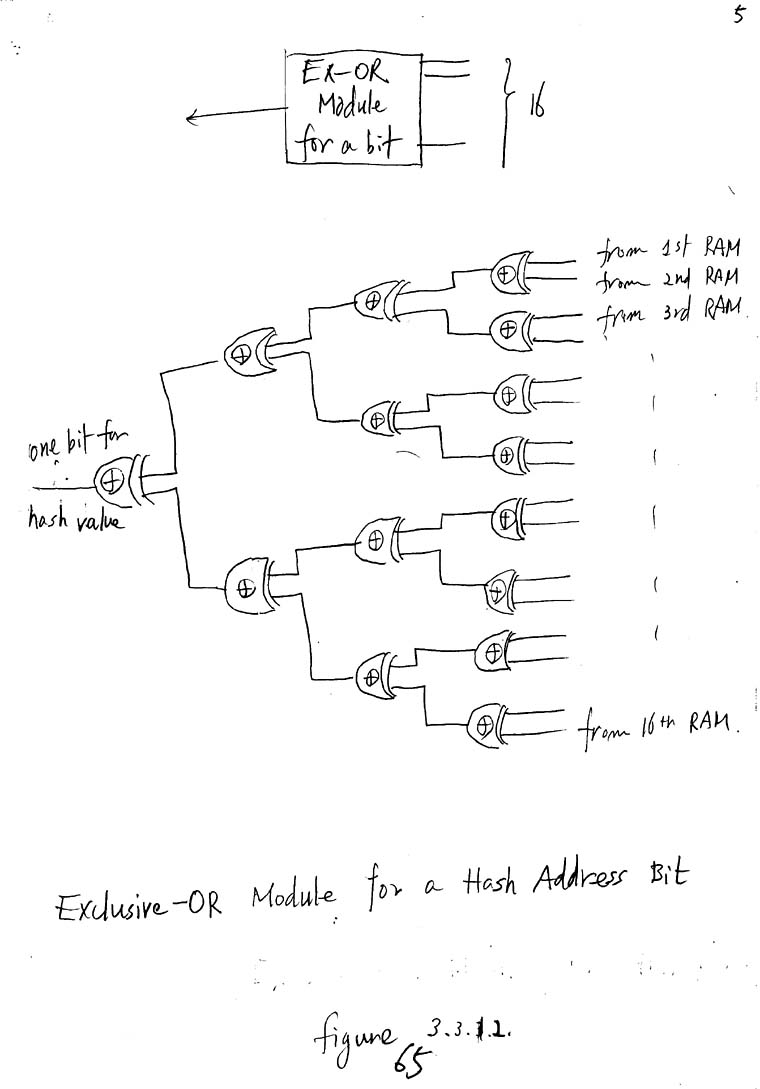 5
Ex-OR
Module
for a bit
16
from 1st RAM
from 2nd RAM
from 3rd RAM.
one bit for
hash value
from 16th RAM.
Exclusive-OR Module for a Hash Address Bit
figure 3.3.1.2.
65